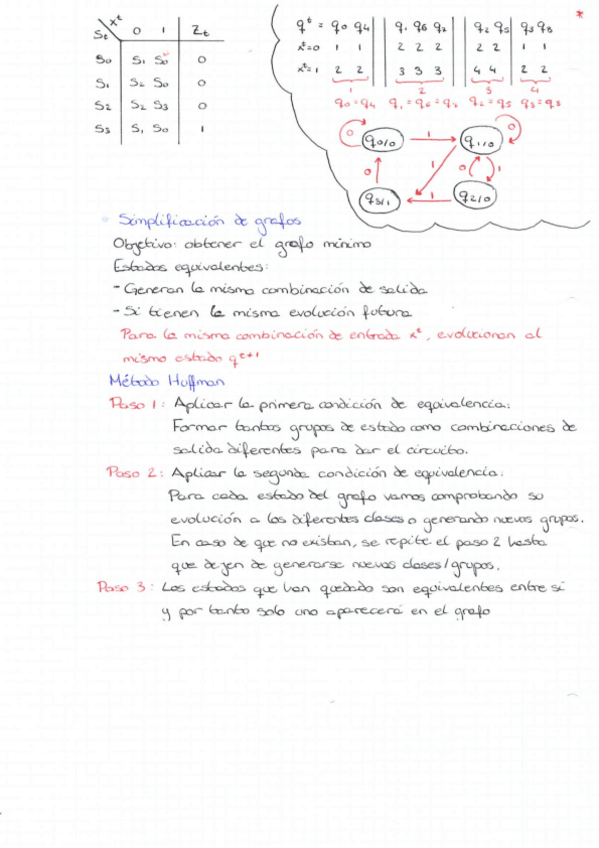 St \ xᵗ 0 1 Zt
S0 S1 S0 0
S1 S2 S0 0
S2 S2 S3 0
S3 S1 S0 1
qᵗ = q0 q4 | q1 q6 q7 | q2 q5 | q3 q8 *
xᵗ=0 1 1 2 2 2 2 2 1 1
xᵗ=1 2 2 3 3 3 4 4 2 2
1 2 3 4
q0=q4 q1=q6=q7 q2=q5 q3=q8
0 q0/0 1 q1/0 0
0 1 0 1
q3/1 1 q2/0
Simplificación de grafos
Objetivo: obtener el grafo mínimo
Estados equivalentes:
- Generan la misma combinación de salida
- Si tienen la misma evolución futura
Para la misma combinación de entrada xᵗ, evolucionan al
mismo estado qᵗ⁺¹
Método Huffman
Paso 1: Aplicar la primera condición de equivalencia:
Formar tantos grupos de estado como combinaciones de
salida diferentes para dar el circuito.
Paso 2: Aplicar la segunda condición de equivalencia:
Para cada estado del grafo vamos comprobando su
evolución a las diferentes clases o generando nuevos grupos.
En caso de que no existan, se repite el paso 2 hasta
que dejen de generarse nuevas clases/grupos.
Paso 3: Los estados que han quedado son equivalentes entre sí
y por tanto solo uno aparecerá en el grafo